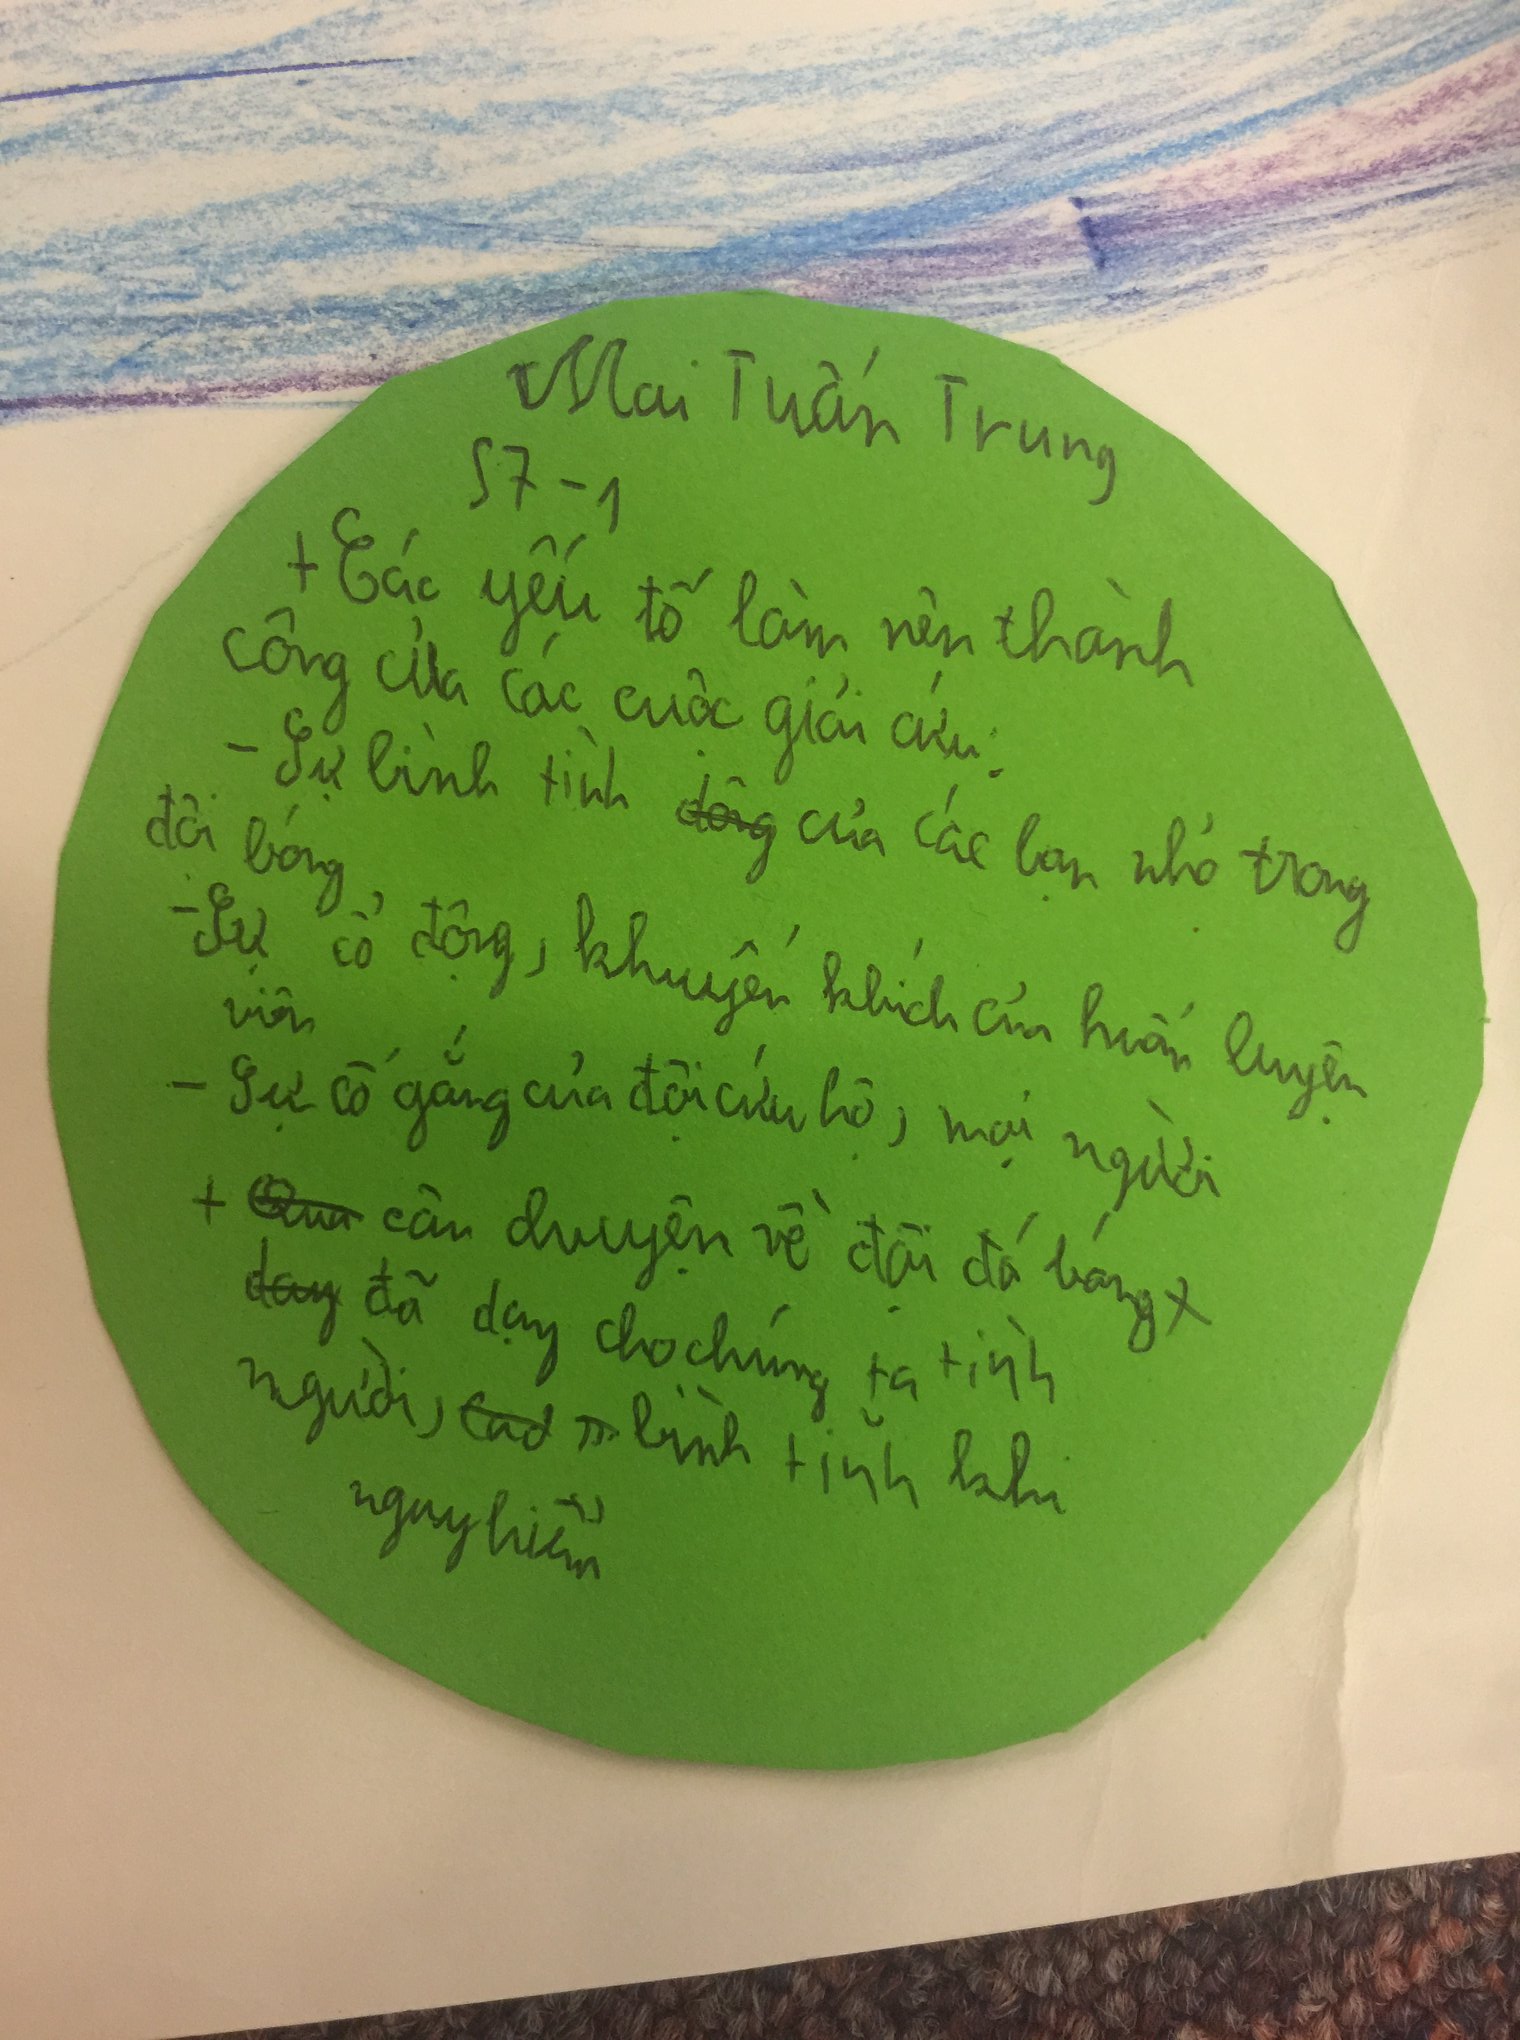 Mai Tuấn Trung
S7-1
+ Các yếu tố làm nên thành
công của các cuộc giải cứu:
- Sự bình tĩnh của các bạn nhỏ trong
đội bóng,
- Sự cổ động, khuyến khích của huấn luyện
viên
- Sự cố gắng của đội cứu hộ, mọi người
+ câu chuyện về đội đá bóng
đã dạy cho chúng ta tình
người, bình tĩnh khi
nguy hiểm